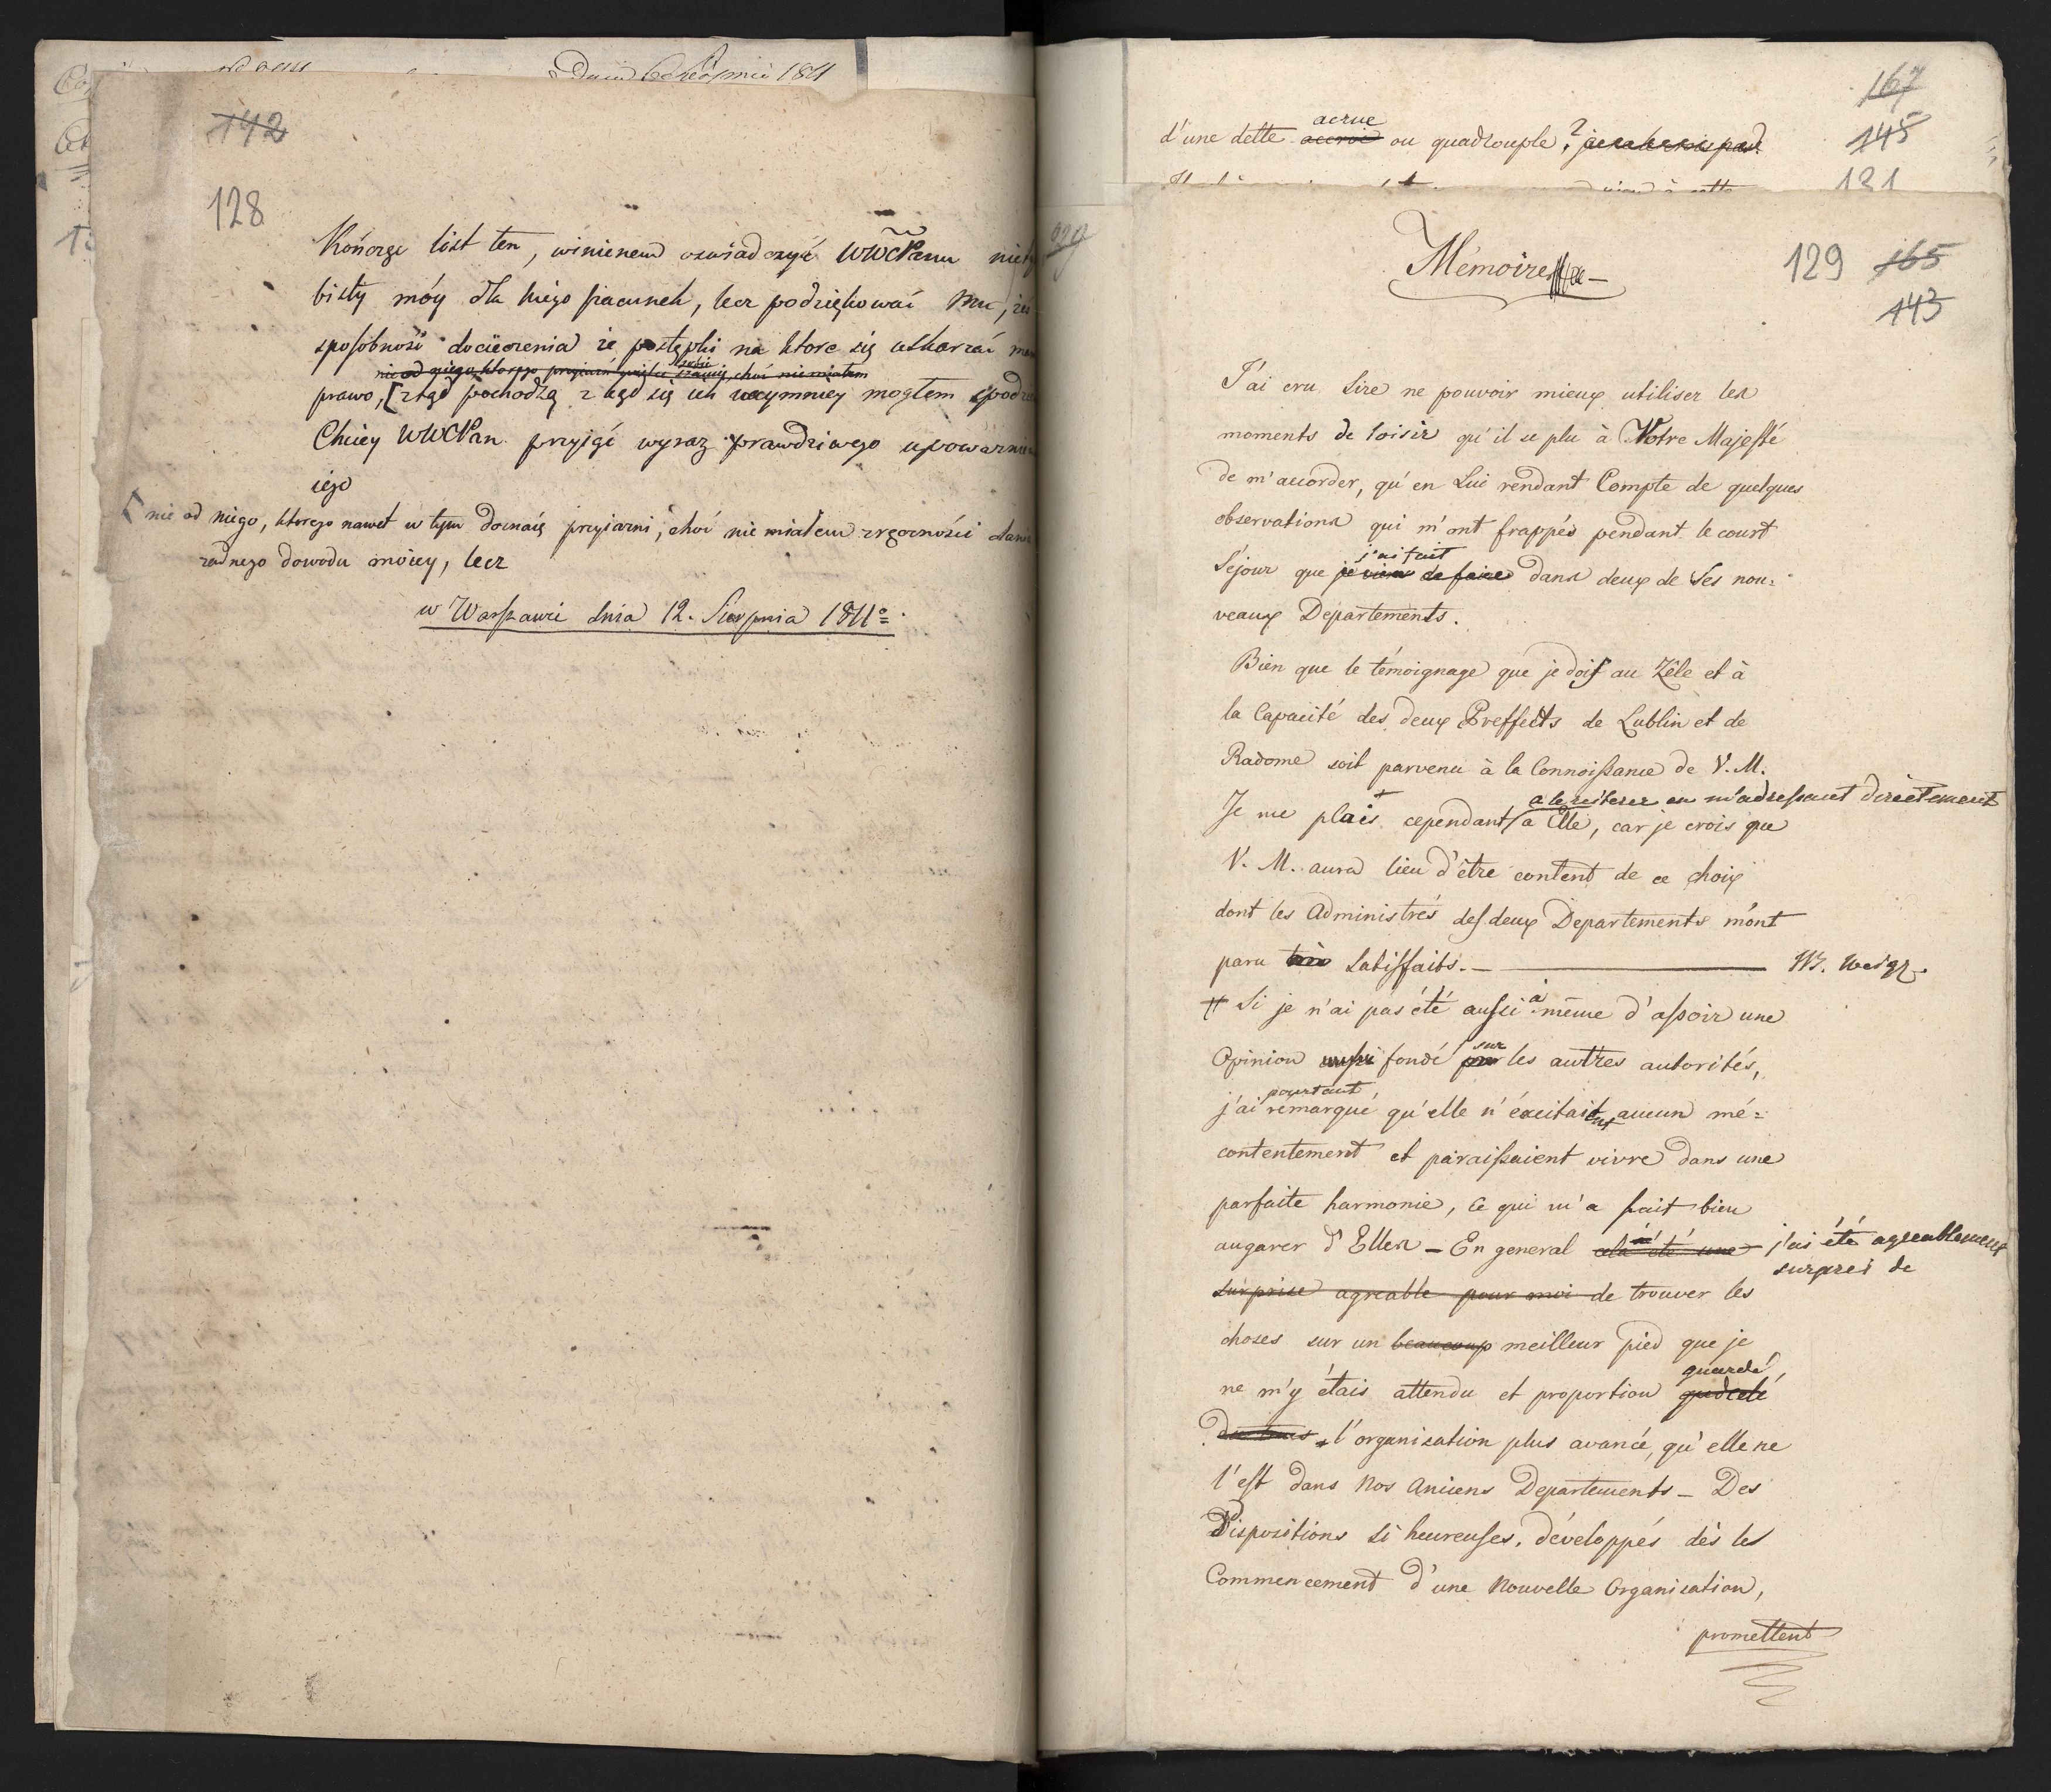 142
128
Kończąc list ten, winienem oswiadczyć WWCPanu
bisty móy dla niego szacunek, lecz podziękować Mu, że
sposobność docieczenia że postępki na ktore się uskarzać
nie od niego, ktorego przyiaźń choć nie miałem
prawo, [ztąd pochodzą z kąd się ich naymniey mogłem
Chciey WWCPan przyiąć wyraz prawdziwego upowaznienia
iego
[nie od niego, ktorego nawet w tym doznaię przyiazni, choć nie miałem zręczności
zadnego dowodu moiey, lecz
w Warszawie dnia 12. Sierpnia 1811º
167
145
131
d'une dette accrue ou quadrouple?
Mémoire
129 165
143
J'ai cru Sire ne pouvoir mieux utiliser les
moments de loisir qu'il se plu à Votre Majesté
de m'accorder, qu'en Lui rendant Compte de quelques
observations qui m'ont frappés pendant le court
j'ai fait
Séjour que je viens de faire dans deux de Ses nou=
veaux Departements.
Bien que le témoignage que je dois au Zêle et à
la Capacité des deux Preffects de Lublin et de
Radome soit parvenu à la Connoissance de V. M.
a le reiterer en m'adressant directement
Je me plais cependant a Elle, car je crois que
V. M. aura lieu d'être content de ce choix
dont les Administrés des deux Departements m'ont
paru très Satisfaits. —
# Si je n'ai pas été aussi à même d'assoir une
Opinion aussi fondé par sur les autres autorités,
pourtant
j'ai remarqué qu'elle n'éxcitaient aucun mé=
contentement et paraissaient vivre dans une
parfaite harmonie, ce qui m'a fait bien
augurer d'Elles — En general cela a été une j'ai été agreablement
surpris de
surprise agreable pour moi de trouver les
choses sur un beaucoup meilleur pied que je
ne m'y étais attendu et proportion guardé
l'organisation plus avancé, qu'elle ne
l'est dans Nos Anciens Departements — Des
Dispositions si heureuses, développés dès les
Commencement d'une Nouvelle Organisation,
promettent